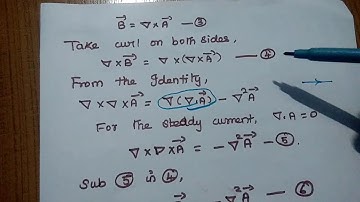 B⃗ = ∇×A⃗ — ③
Take curl on both sides,
∇×B⃗ = ∇×(∇×A⃗) — ④
From the Identity,
∇×∇×A⃗ = ∇(∇.A⃗) – ∇²A⃗
For the steady current, ∇.A = 0
∇×∇×A⃗ = –∇²A⃗ — ⑤.
Sub ⑤ in ④,
– ∇²A⃗ — ⑥